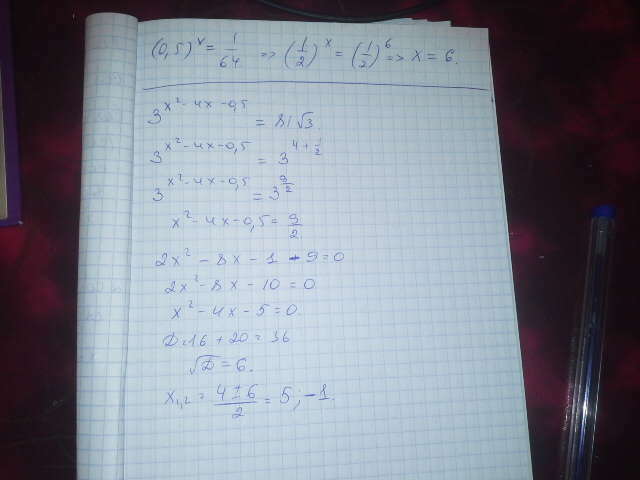 (0,5)^x = 1/64 => (1/2)^x = (1/2)^6 => x = 6.
3^(x²-4x-0,5) = 81√3.
3^(x²-4x-0,5) = 3^(4+1/2)
3^(x²-4x-0,5) = 3^(9/2)
x² - 4x - 0,5 = 9/2
2x² - 8x - 1 - 9 = 0
2x² - 8x - 10 = 0
x² - 4x - 5 = 0.
D = 16 + 20 = 36
√D = 6.
x₁,₂ = (4 ± 6)/2 = 5; -1.